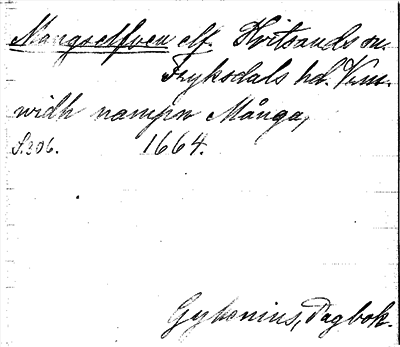 Mangselfven elf. Hvitsands sn.
Fryksdals hd. Verm.
widh nampn Många,
S. 206. 1664.
Gyllenius, Dagbok.